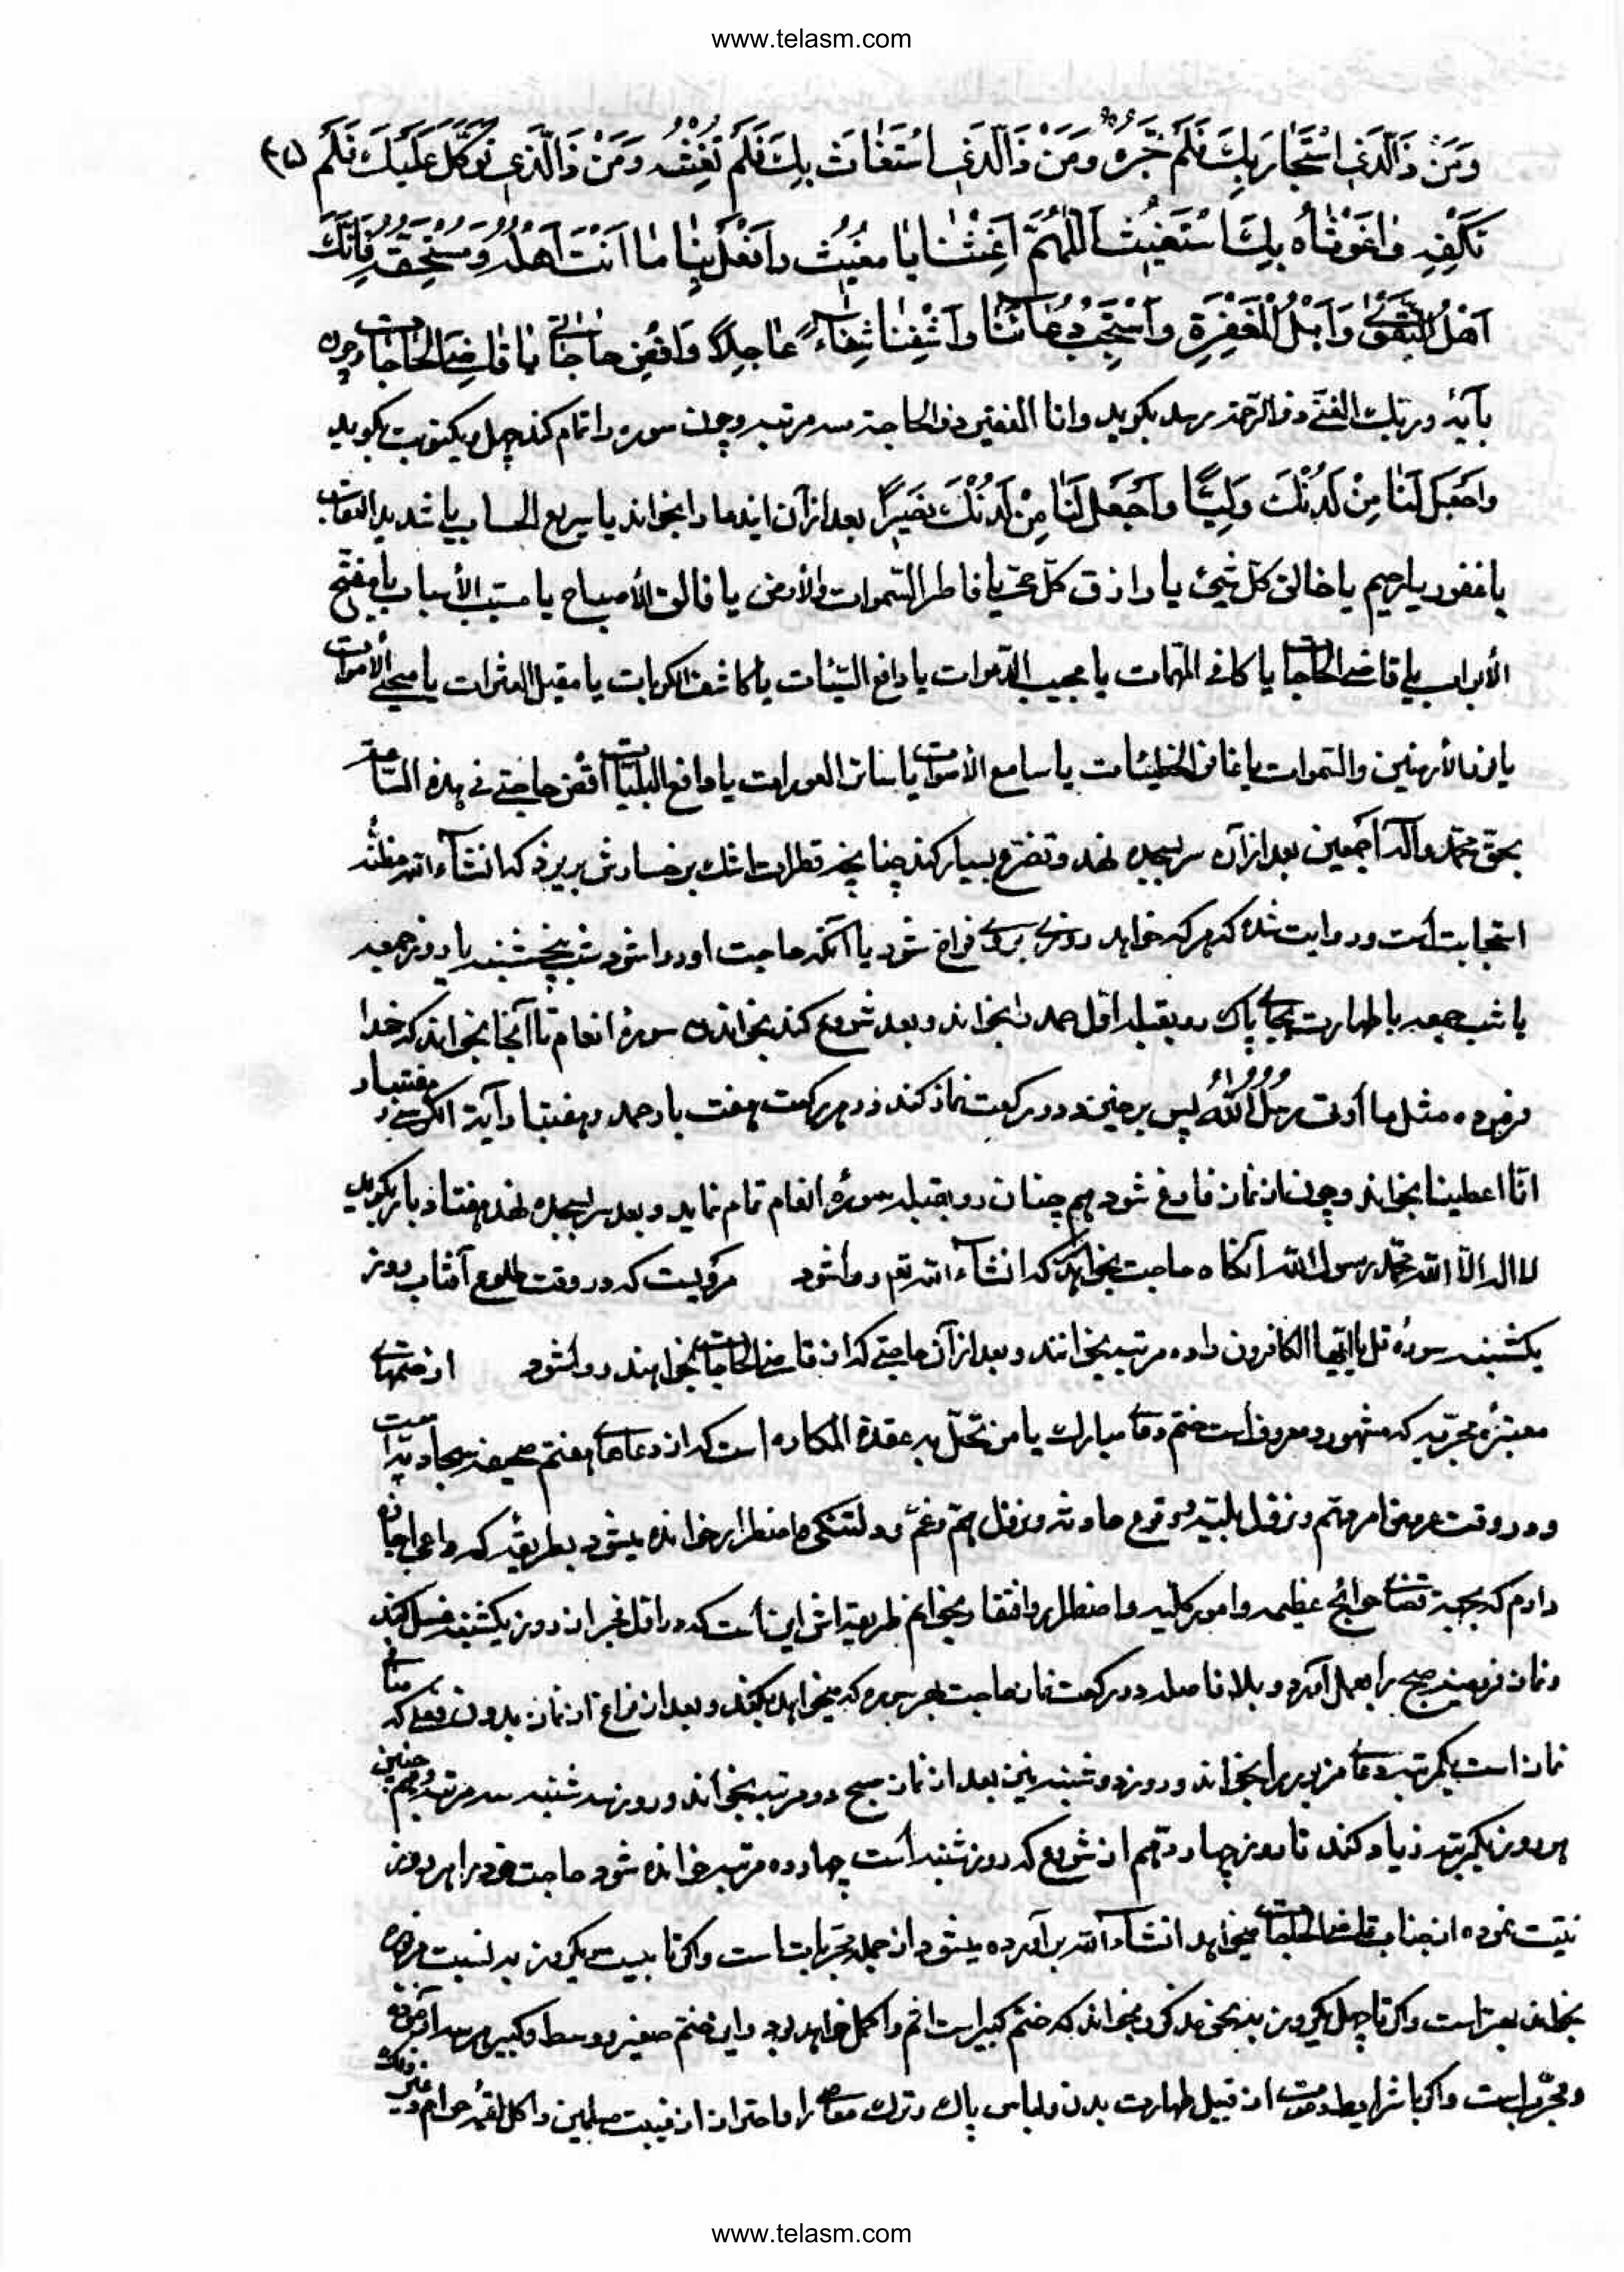 www.telasm.com
وَمَنْ ذَاالَّذی اسْتَجارَ بِكَ فَلَمْ تُجِرْهُ وَمَنْ ذَاالَّذی اسْتَغاثَ بِكَ فَلَمْ تُغِثْهُ وَمَنْ ذَاالَّذی تَوَكَّلَ عَلَیْكَ فَلَمْ
تَكْفِهِ واغَوْثاهُ بِكَ اَسْتَغیثُ اَللّهُمَّ اَغِثْنا یا مغیثُ وافْعَلْ بِنا ما اَنْتَ اَهْلُهُ وَمُسْتَحِقُّهُ فَاِنَّكَ
اَهْلُ التَّقْوی وَاَهْلُ الْمَغْفِرَةِ وَاسْتَجِبْ دُعائَنا وَاشْفِنا شِفاءً عاجِلاً وَاقْضِ حاجاتی یا قاضِیَ الْحاجاتِ وچون
بآیهٔ وربك الغنی ذو الرحمة برسد بكوید وانا الفقیر ذو الحاجة سه مرتبه وچون سوره را تمام كند چهل ویكنوبت بكوید
وَاجْعَلْ لَنا مِنْ لَدُنْكَ وَلِیًّا وَاجْعَلْ لَنا مِنْ لَدُنْكَ نَصیرًا بعد از آن ایندعا را بخواند یا سریع الحساب یا شدید العقاب
یا غفور یا رحیم یا خالق كلّ شیئ یا رازق كلّ حیّ یا فاطر السّموات والأرض یا فالق الأصباح یا مسبّب الأسباب یا مفتّح
الأبواب یا قاضی الحاجات یا كافی المهمّات یا مجیب الدّعوات یا دافع السّیّئات یا كاشف الكربات یا مقیل العثرات یا محیی الأموات
یا نور الأرضین والسّموات یا غافر الخطیئات یا سامع الأصوات یا ساتر العورات یا دافع البلیّات اقض حاجتی فی هذه السّاعة
بحقّ محمّد وآله اجمعین بعد از آن سر بسجده نهد وتضرّع بسیار كند چنانچه قطرات اشك بر رخسارش بریزد كه انشآء الله مظنّهٔ
استجابت است وروایت شده كه هر كه خواهد روزی بر وی فراخ شود یا آنكه حاجت او روا شود شب پنجشنبه یا روز جمعه
یا شب جمعه با طهارت بجای پاك رو بقبله اوّل حمد را بخواند وبعد شروع كند بخواندن سورهٔ انعام تا آنجا بخواند كه خدا
فرموده مثل ما أوتی رسل الله پس برخیزد ودو ركعت نماز كند در هر ركعت هفت بار حمد وهفتبار آیة الكرسی وهفتبار
انّا اعطینا بخواند وچون از نماز فارغ شود هم چنان رو بقبله سورهٔ انعام تمام نماید وبعد سر بسجده نهد وهفتاد بار بگوید
لا اله الاّ الله محمّد رسول الله آنگاه حاجت بخواهد كه انشآء الله تعم روا شود مرویست كه در وقت طلوع آفتاب روز
یكشنبه سورهٔ قل یا ایّها الكافرون را ده مرتبه بخوانند وبعد از آن حاجتی كه از قاضی الحاجات بخواهند روا شود از ختمهای
معتبرهٔ مجرّبه كه مشهور ومعروف است ختم دعای مبارك یا من تحلّ به عقدة المكاره است كه از دعاهای هفتم صحیفهٔ سجادیّه است
ودر وقت عروض امر مهمّ ونزول بلیّه ووقوع حادثه ونزول همّ وغمّ ودلتنكی واضطرار خوانده میشود بطریقهٔ كه داعی اجازه
دارم كه بجهة قضای حوائج عظیمه وامور كلّیه واضطرار وافتقار میخوانم طریقه‌اش این است كه در اوّل فجر از روز یكشنبه غسل كند
ونماز فریضهٔ صبح را بعمل آورد وبلا فاصله دو ركعت نماز حاجت بهر سوره كه میخواهد بكند وبعد از فراغ از نماز بدون فعلی كه منافی
نماز است یكمرتبه دعای مزبور را بخواند وروز دوشنبه نیز بعد از نماز صبح دو مرتبه بخواند وروز سه شنبه سه مرتبه وهم چنین
هر روز یكمرتبه زیاد كند تا روز چهاردهم از شروع كه روز شنبه است چهارده مرتبه خوانده شود حاجت خود را هر روز
نیّت نموده از جناب قاضی الحاجات میخواهد انشآء الله بر آورده میشود از جمله مجرّبات است واكر تا بیست ویكروز بدینسبت مزبوره
بخواند بهتر است واكر تا چهل ویكروز بنحو مذكور بخواند كه ختم كبیر است اتم واكمل خواهد بود واین ختم صغیر ووسط وكبیر هر سه آزموده
ومجرّب است واكر با شرایط دعوت از قبیل طهارت بدن ولباس پاك وترك معاصی را واحتراز از غیبت مسلمین واكل لقمهٔ حرام وغیر ذلك
www.telasm.com